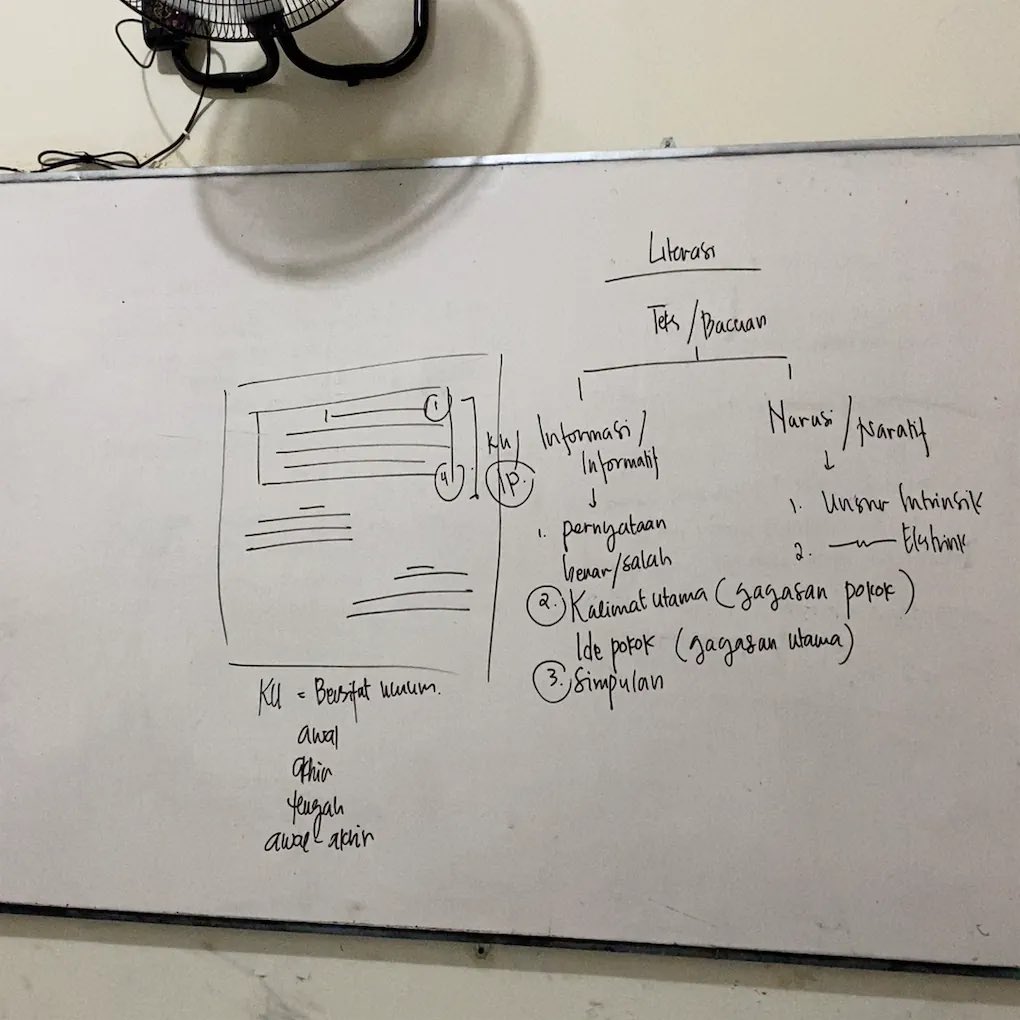 Literasi
Teks/Bacaan
Informasi/
Informatif
1. pernyataan
benar/salah
2. Kalimat utama (gagasan pokok)
Ide pokok (gagasan utama)
3. Simpulan
Narasi/Naratif
1. Unsur Intrinsik
2. —〃— Ekstrinsik
1
4
KU/
IP.
KU = Bersifat umum.
awal
akhir
tengah
awal-akhir